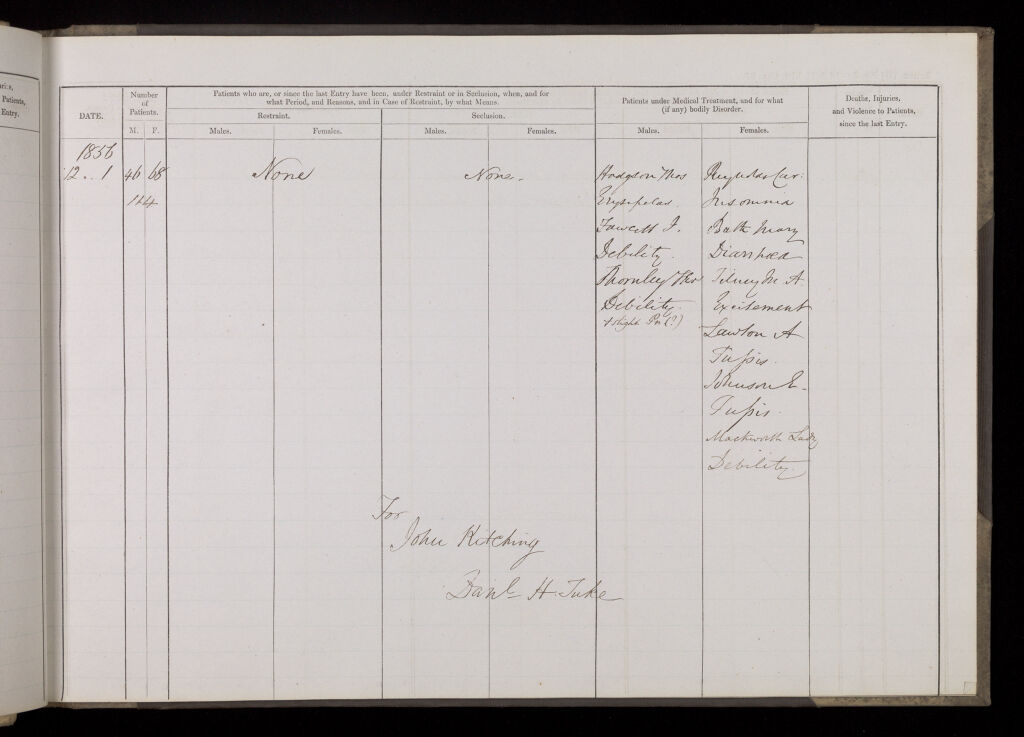 Patients,
Entry.
DATE.
Number
of
Patients.
M. F.
Patients who are, or since the last Entry have been, under Restraint or in Seclusion, when, and for
what Period, and Reasons, and in Case of Restraint, by what Means.
Restraint.
Seclusion.
Males.
Females.
Males.
Females.
Patients under Medical Treatment, and for what
(if any) bodily Disorder.
Males.
Females.
Deaths, Injuries,
and Violence to Patients,
since the last Entry.
1856
12 .. 1
46 68
114
None
None.
Hodgson Thos
Erysipelas.
Fawcett J.
Debility.
Thornley Thos
Debility.
+ slight (?)
Reynolds Car:
Insomnia
Batt Mary
Diarrhœa
Tilney M. A.
Excitement
Lawton A
Tussis.
Johnson E.
Tussis.
Mackworth Lady
Debility.
For
John Kitching
Danl H. Tuke